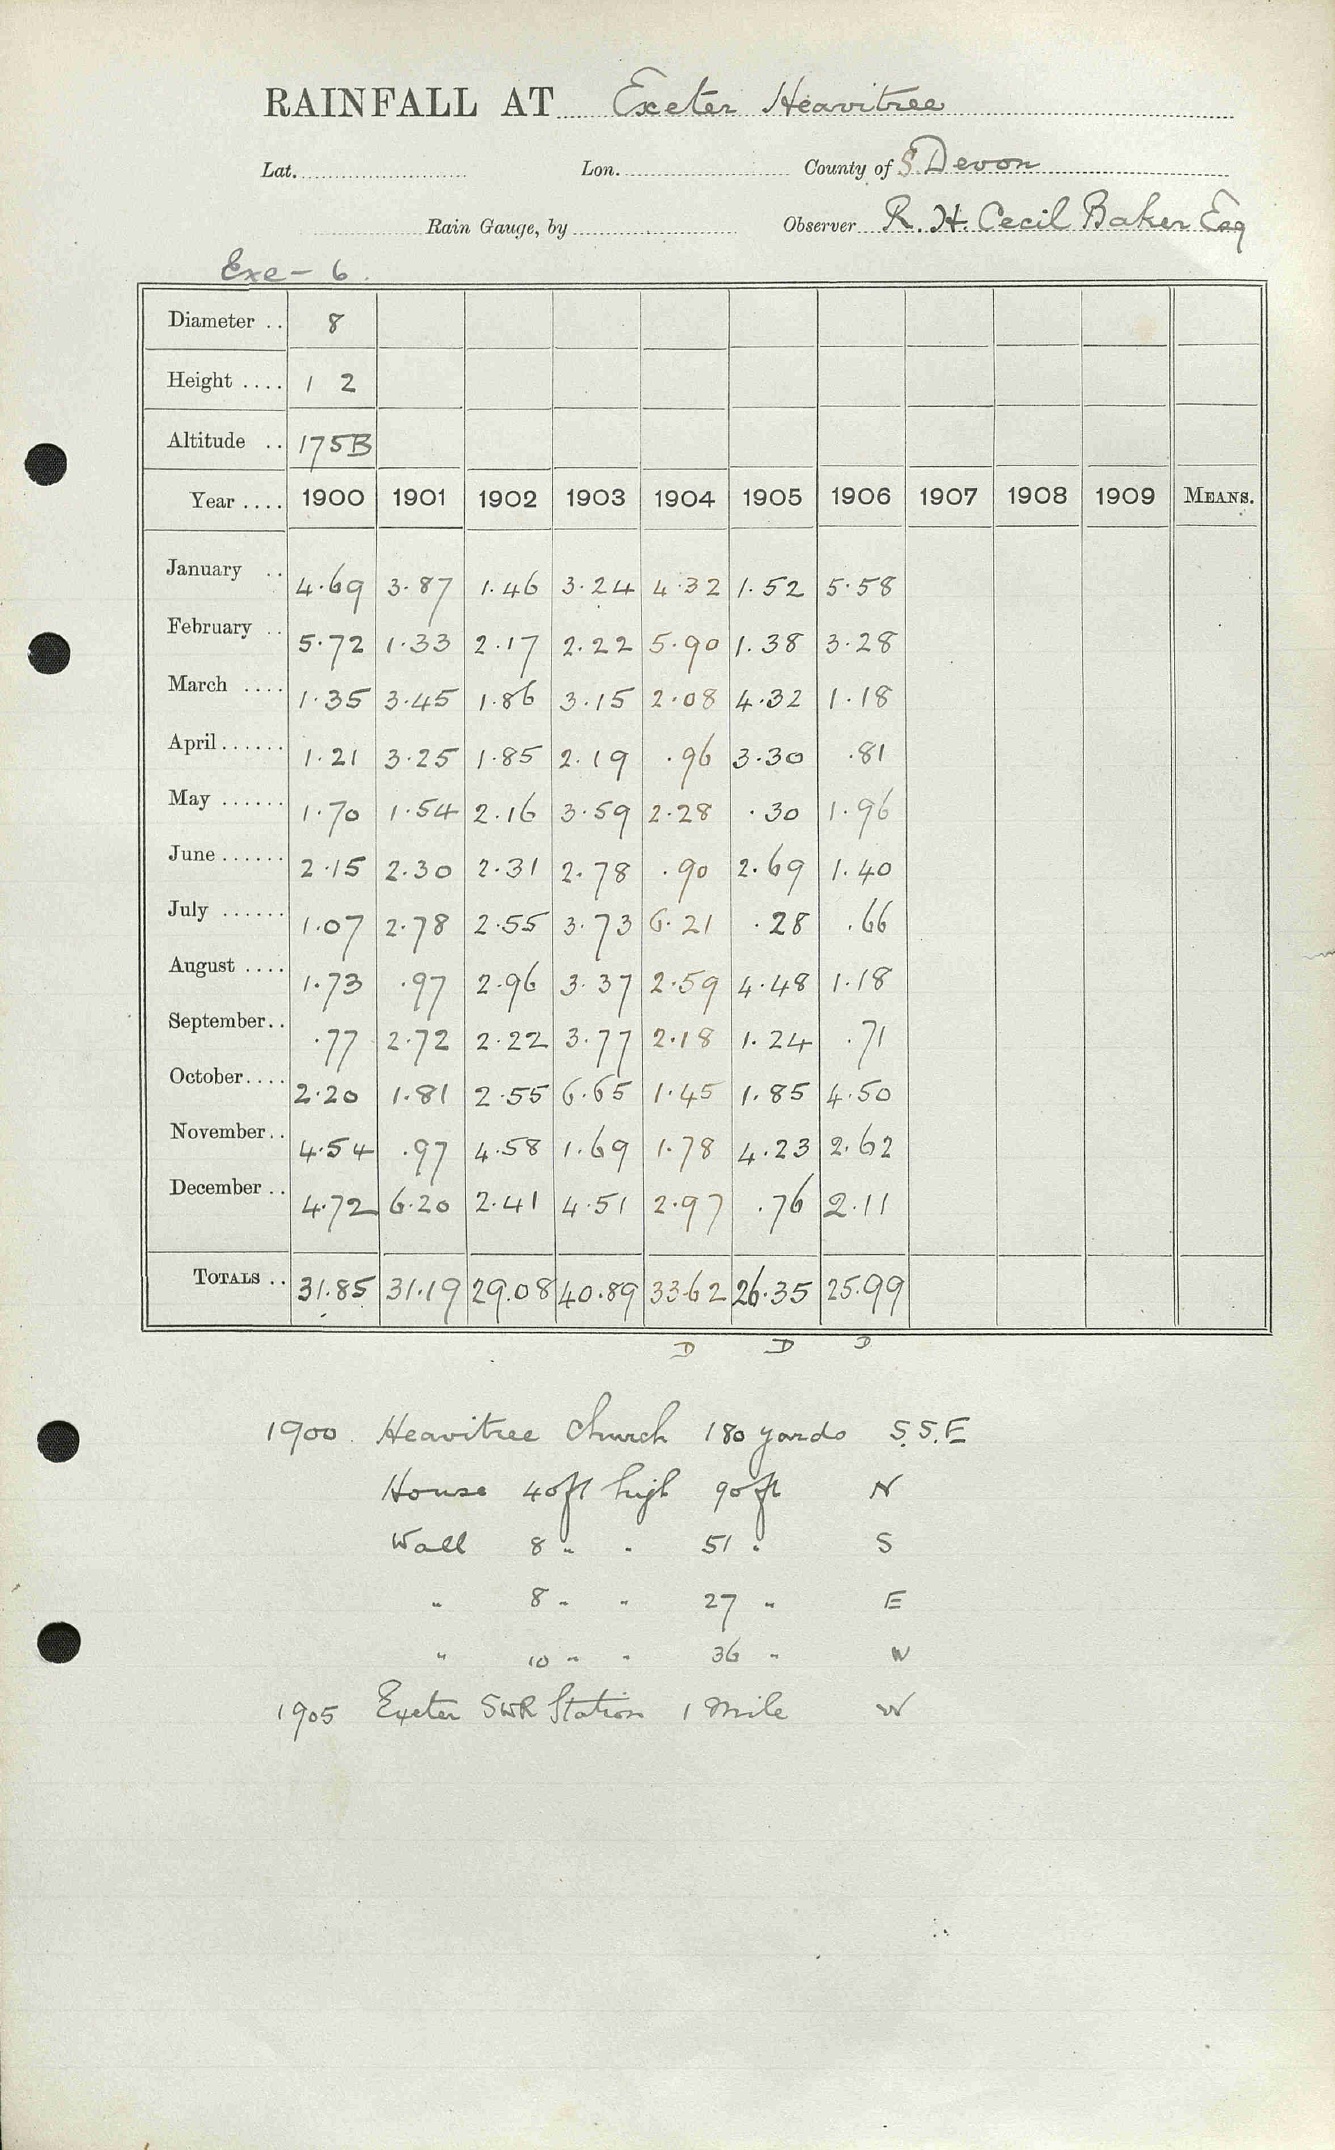 RAINFALL AT Exeter Heavitree
Lat. Lon. County of S. Devon
Rain Gauge, by Observer R. H. Cecil Baker Esq
Exe - 6.
Diameter .. 8
Height .... 1 2
Altitude .. 175B
Year .... 1900 1901 1902 1903 1904 1905 1906 1907 1908 1909 MEANS.
January .. 4.69 3.87 1.46 3.24 4.32 1.52 5.58
February .. 5.72 1.33 2.17 2.22 5.90 1.38 3.28
March .... 1.35 3.45 1.86 3.15 2.08 4.32 1.18
April ...... 1.21 3.25 1.85 2.19 .96 3.30 .81
May ...... 1.70 1.54 2.16 3.59 2.28 .30 1.96
June ...... 2.15 2.30 2.31 2.78 .90 2.69 1.40
July ...... 1.07 2.78 2.55 3.73 6.21 .28 .66
August .... 1.73 .97 2.96 3.37 2.59 4.48 1.18
September.. .77 2.72 2.22 3.77 2.18 1.24 .71
October.... 2.20 1.81 2.55 6.65 1.45 1.85 4.50
November.. 4.54 .97 4.58 1.69 1.78 4.23 2.62
December .. 4.72 6.20 2.41 4.51 2.97 .76 2.11
TOTALS .. 31.85 31.19 29.08 40.89 33.62 26.35 25.99
D D D
1900 Heavitree Church 180 yards S.S.E
House 40ft high 90ft N
Wall 8 " " 51 " S
" 8 " " 27 " E
" 10 " " 36 " W
1905 Exeter SWR Station 1 Mile W